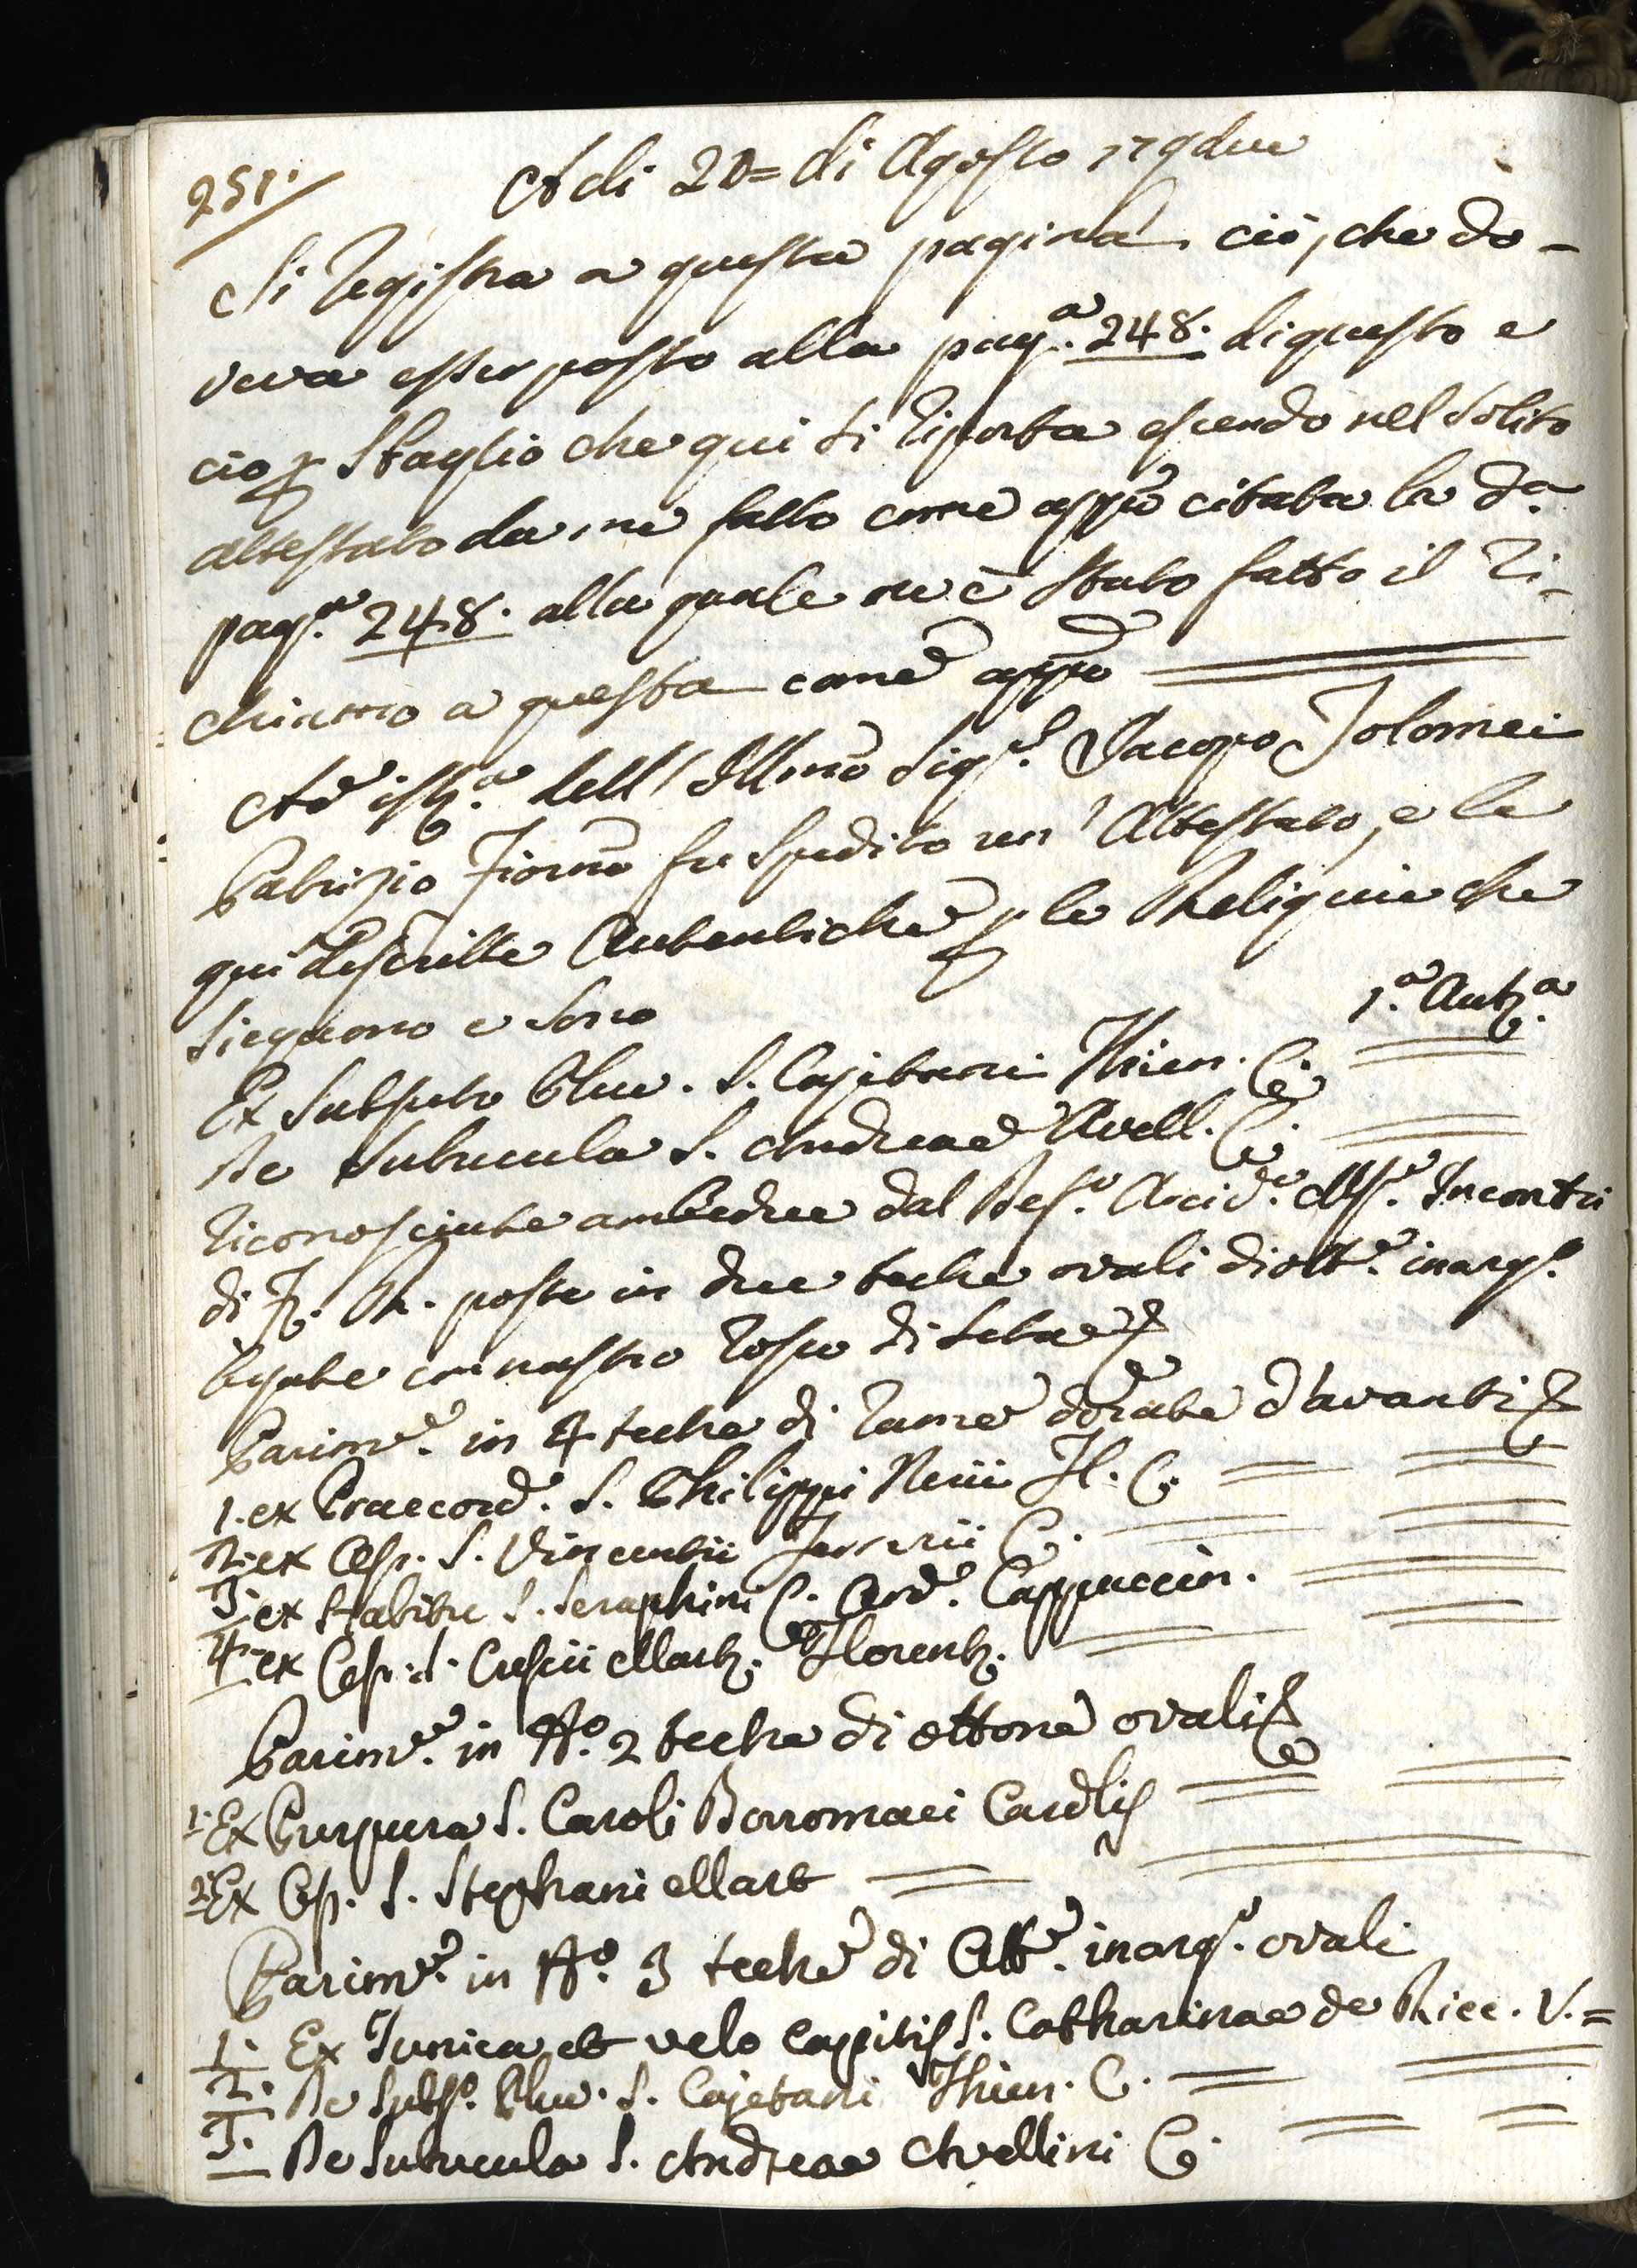 251.
Adi 20= di Agosto 179due
Si registra a questa pagina, ciò, che do-
veva esser posto alla pag.ª 248. di questo e
ciò p Sbaglio che qui si riporta essendo nel solito
attestato da me fatto come appo citata la da.
pag.ª 248. alla quale ne è stato fatto il ri-
chiamo a questa come appo
Ad istz.ª dell' Illmo Sigr. Jacopo Tolomei
Gabrizio Fiorno fu spedito un' Attestato, e le
qui descritte Autentiche p le Reliquie che
sieguono e sono
1.ª Autz.ª
Ex Subputo Clu. S. Cajetani Thien. C.
De Subucula S. Andreae Avell. C.
riconosciute ambedue dal Def.º Arcid.º Mr. Incontri
di F. R. poste in due teche ovali di ott.e inarg.º
legate con nastro rosso di seta
Parim.e in 4 teche di rame dorate d'avanti
1. ex Praecord. S. Philippi Nerii Fl. C.
2. ex Oss. S. Vincentii Ferrerii C.
3. ex Habitu S. Seraphini C. Ord. Cappuccin.
4. ex Oss. S. Crescii Martz. Florentz.
Parim.e in No. 2 teche di ottone ovali
1. Ex Purpura S. Caroli Borromaei Cardlis
2. Ex Oss. S. Stephani Mart
Parim.e in No. 3 teche di Ott.e inarg.º ovali
1. Ex Tunica et velo capitis S. Catharinae de Ricc. V.=
2. De Subp.º Clu. S. Cajetani Thien. C.
3. De Subucula S. Andreae Avellini C.